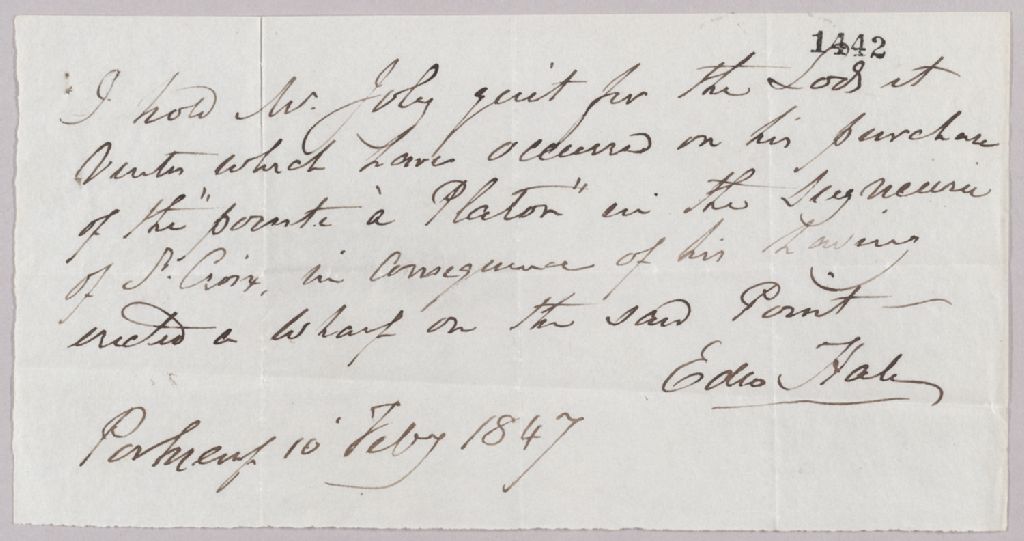 1442
I hold Mr. Joly quit for the Lods et
Ventes which have occurred on his purchase
of the "pointe à Platon" in the Seigneurie
of St. Croix, in consequence of his having
erected a wharf on the said Point —
Edwd Hale
Portneuf 10 Feby 1847